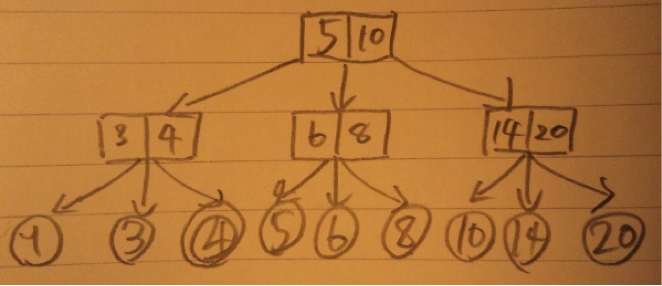 5 10
3 4 6 8 14 20
1 3 4 5 6 8 10 14 20